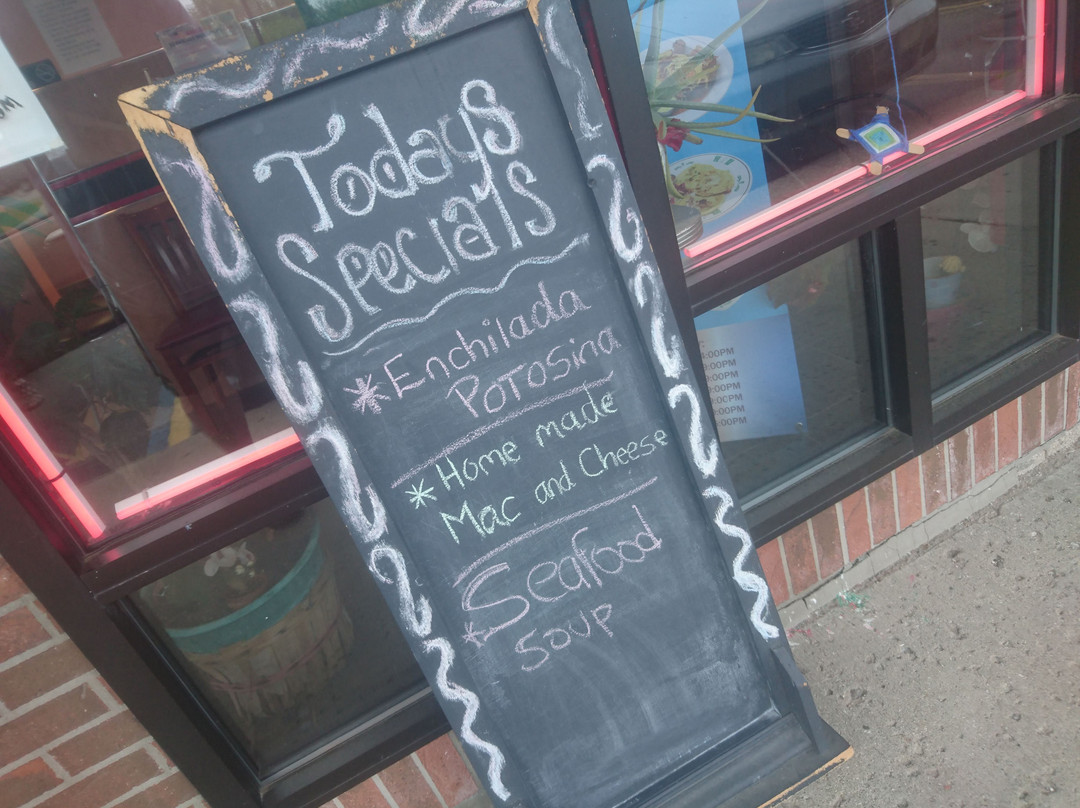 Todays
Specials
* Enchilada
Potosina
* Home made
Mac and Cheese
* Seafood
Soup
:00PM
:00PM
:00PM
:00PM
:00PM
00PM